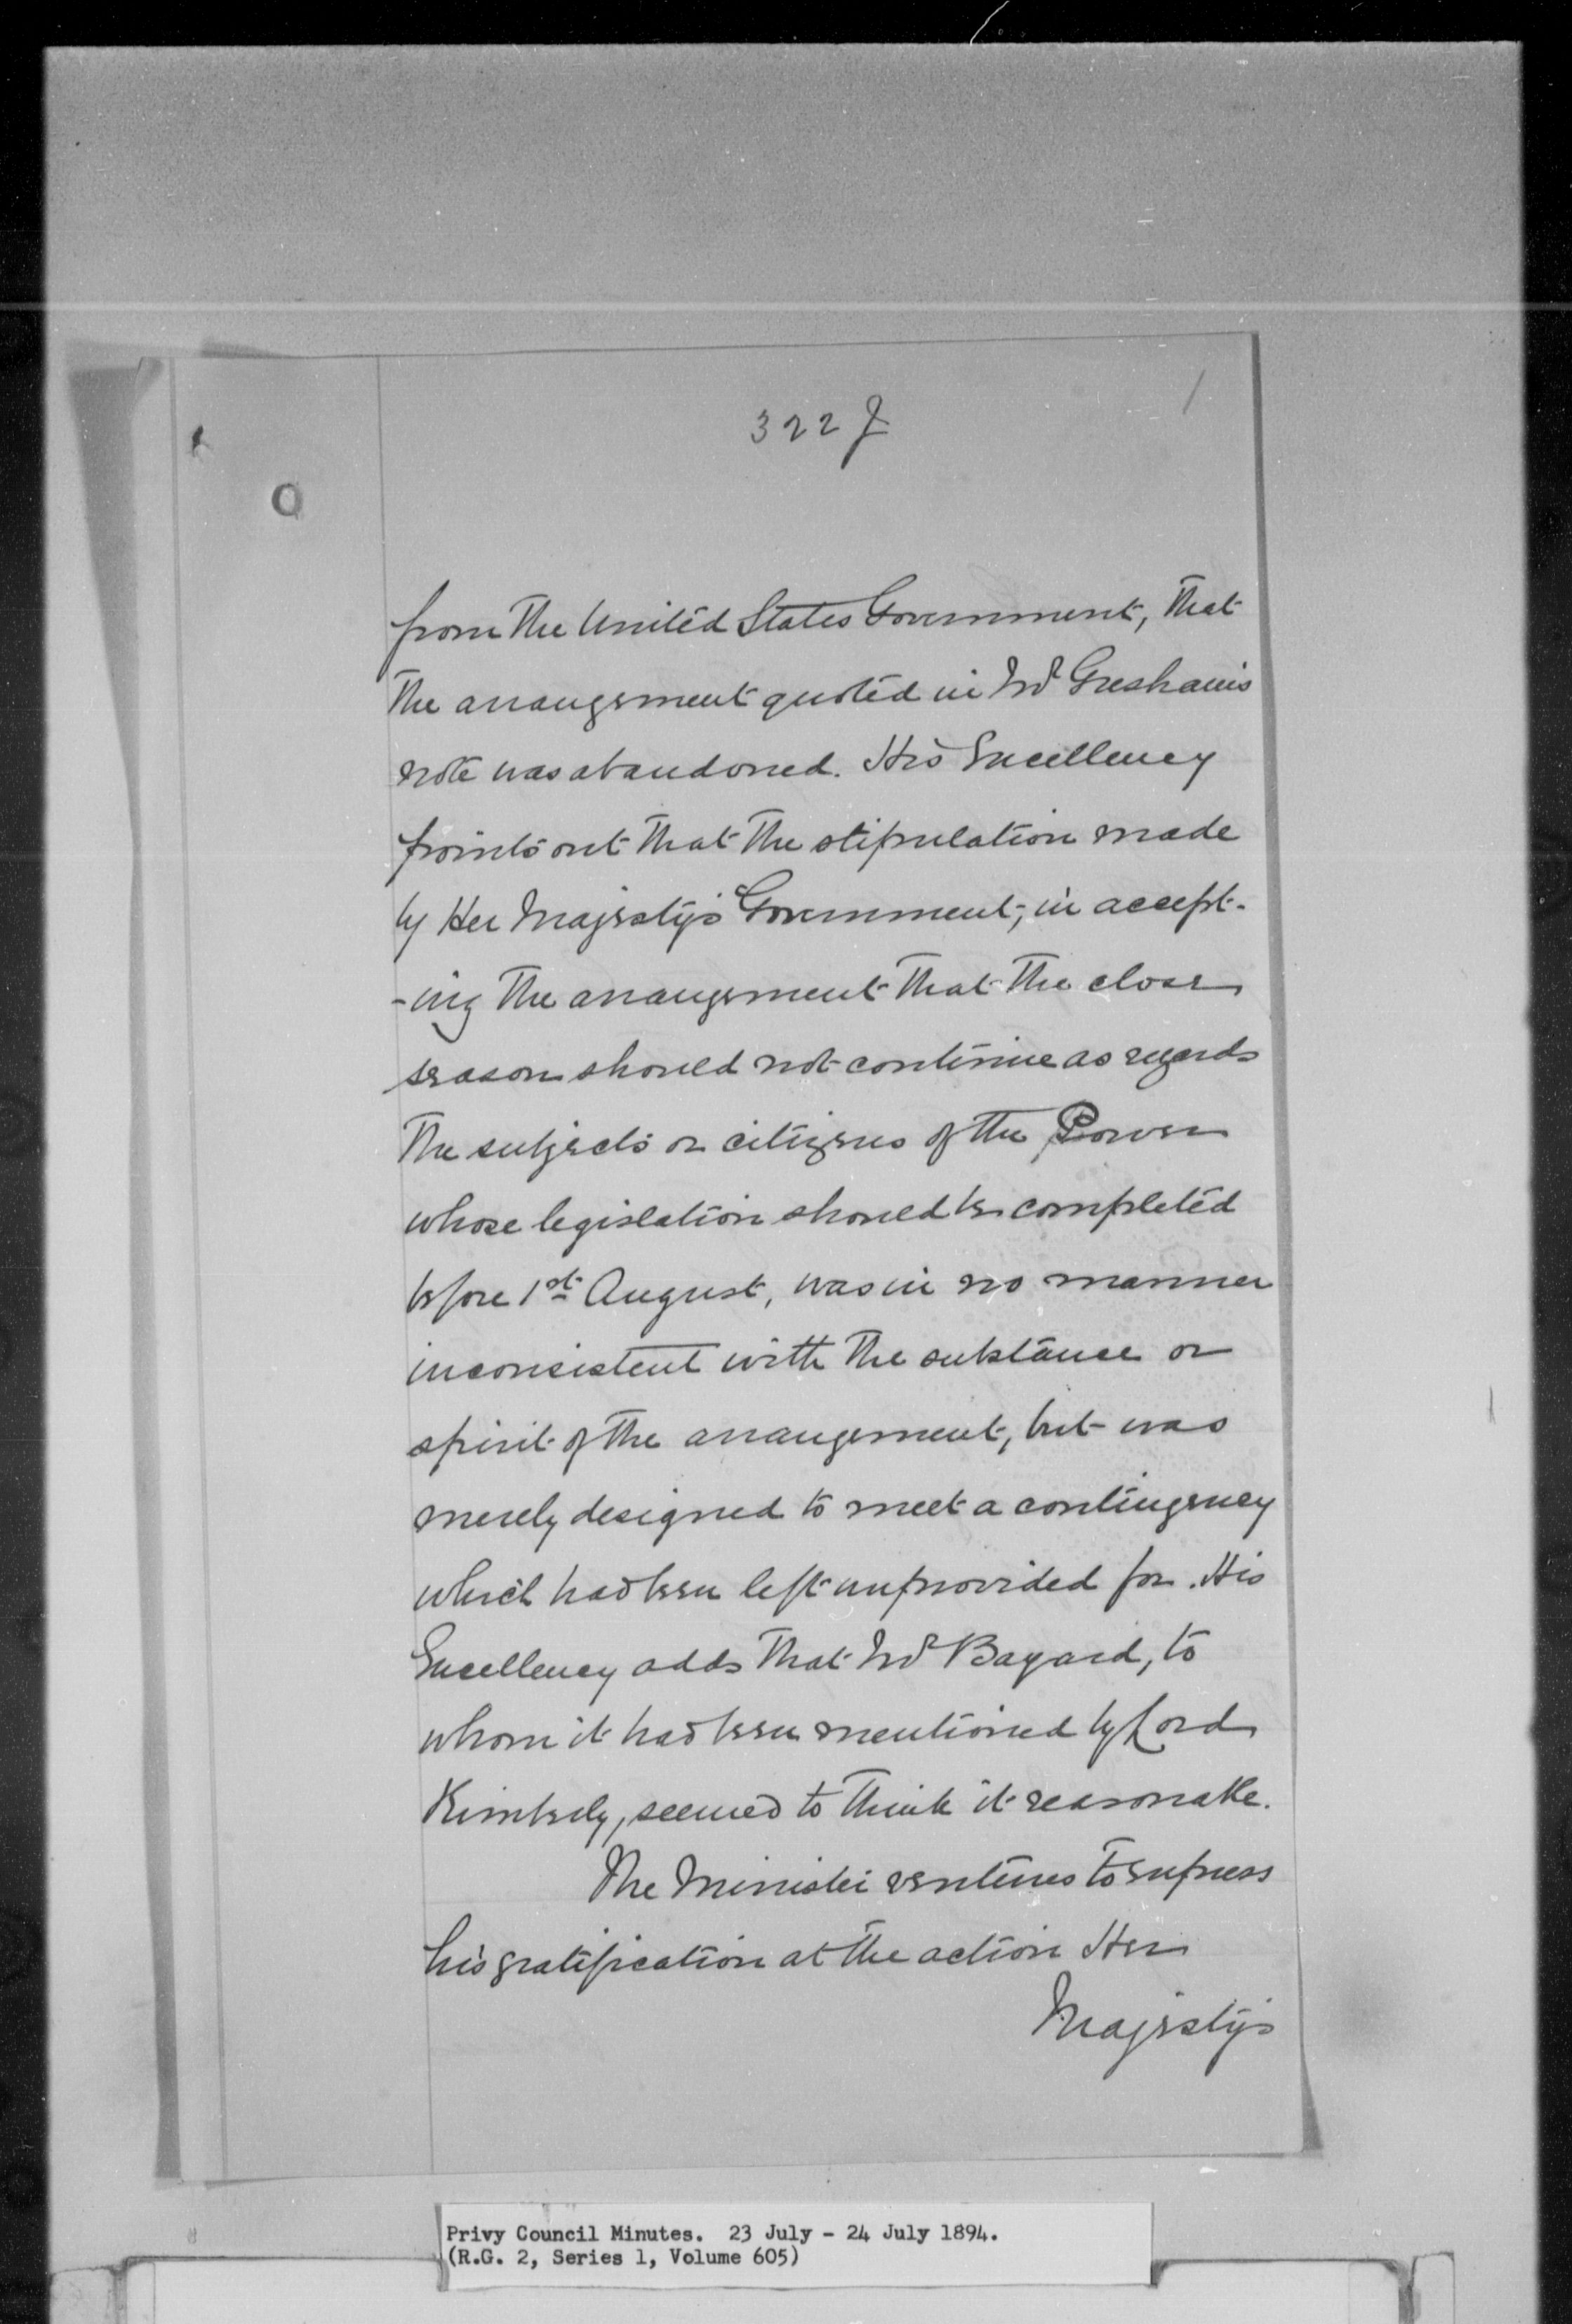 322 J
O
from the United States Government, that
the arrangement quoted in Mr Gresham's
note was abandoned. His Excellency
points out that the stipulation made
by Her Majesty's Government, in accept-
-ing the arrangement that the close
season should not continue as regards
the subjects or citizens of the Power
whose legislation should be completed
before 1st August, was in no manner
inconsistent with the substance or
spirit of the arrangement, but was
merely designed to meet a contingency
which had been left unprovided for. His
Excellency adds that Mr Bayard, to
whom it had been mentioned by Lord
Kimberly, seemed to think it reasonable.
The Minister ventures to express
his gratification at the action Her
Majesty's
Privy Council Minutes. 23 July - 24 July 1894.
(R.G. 2, Series 1, Volume 605)